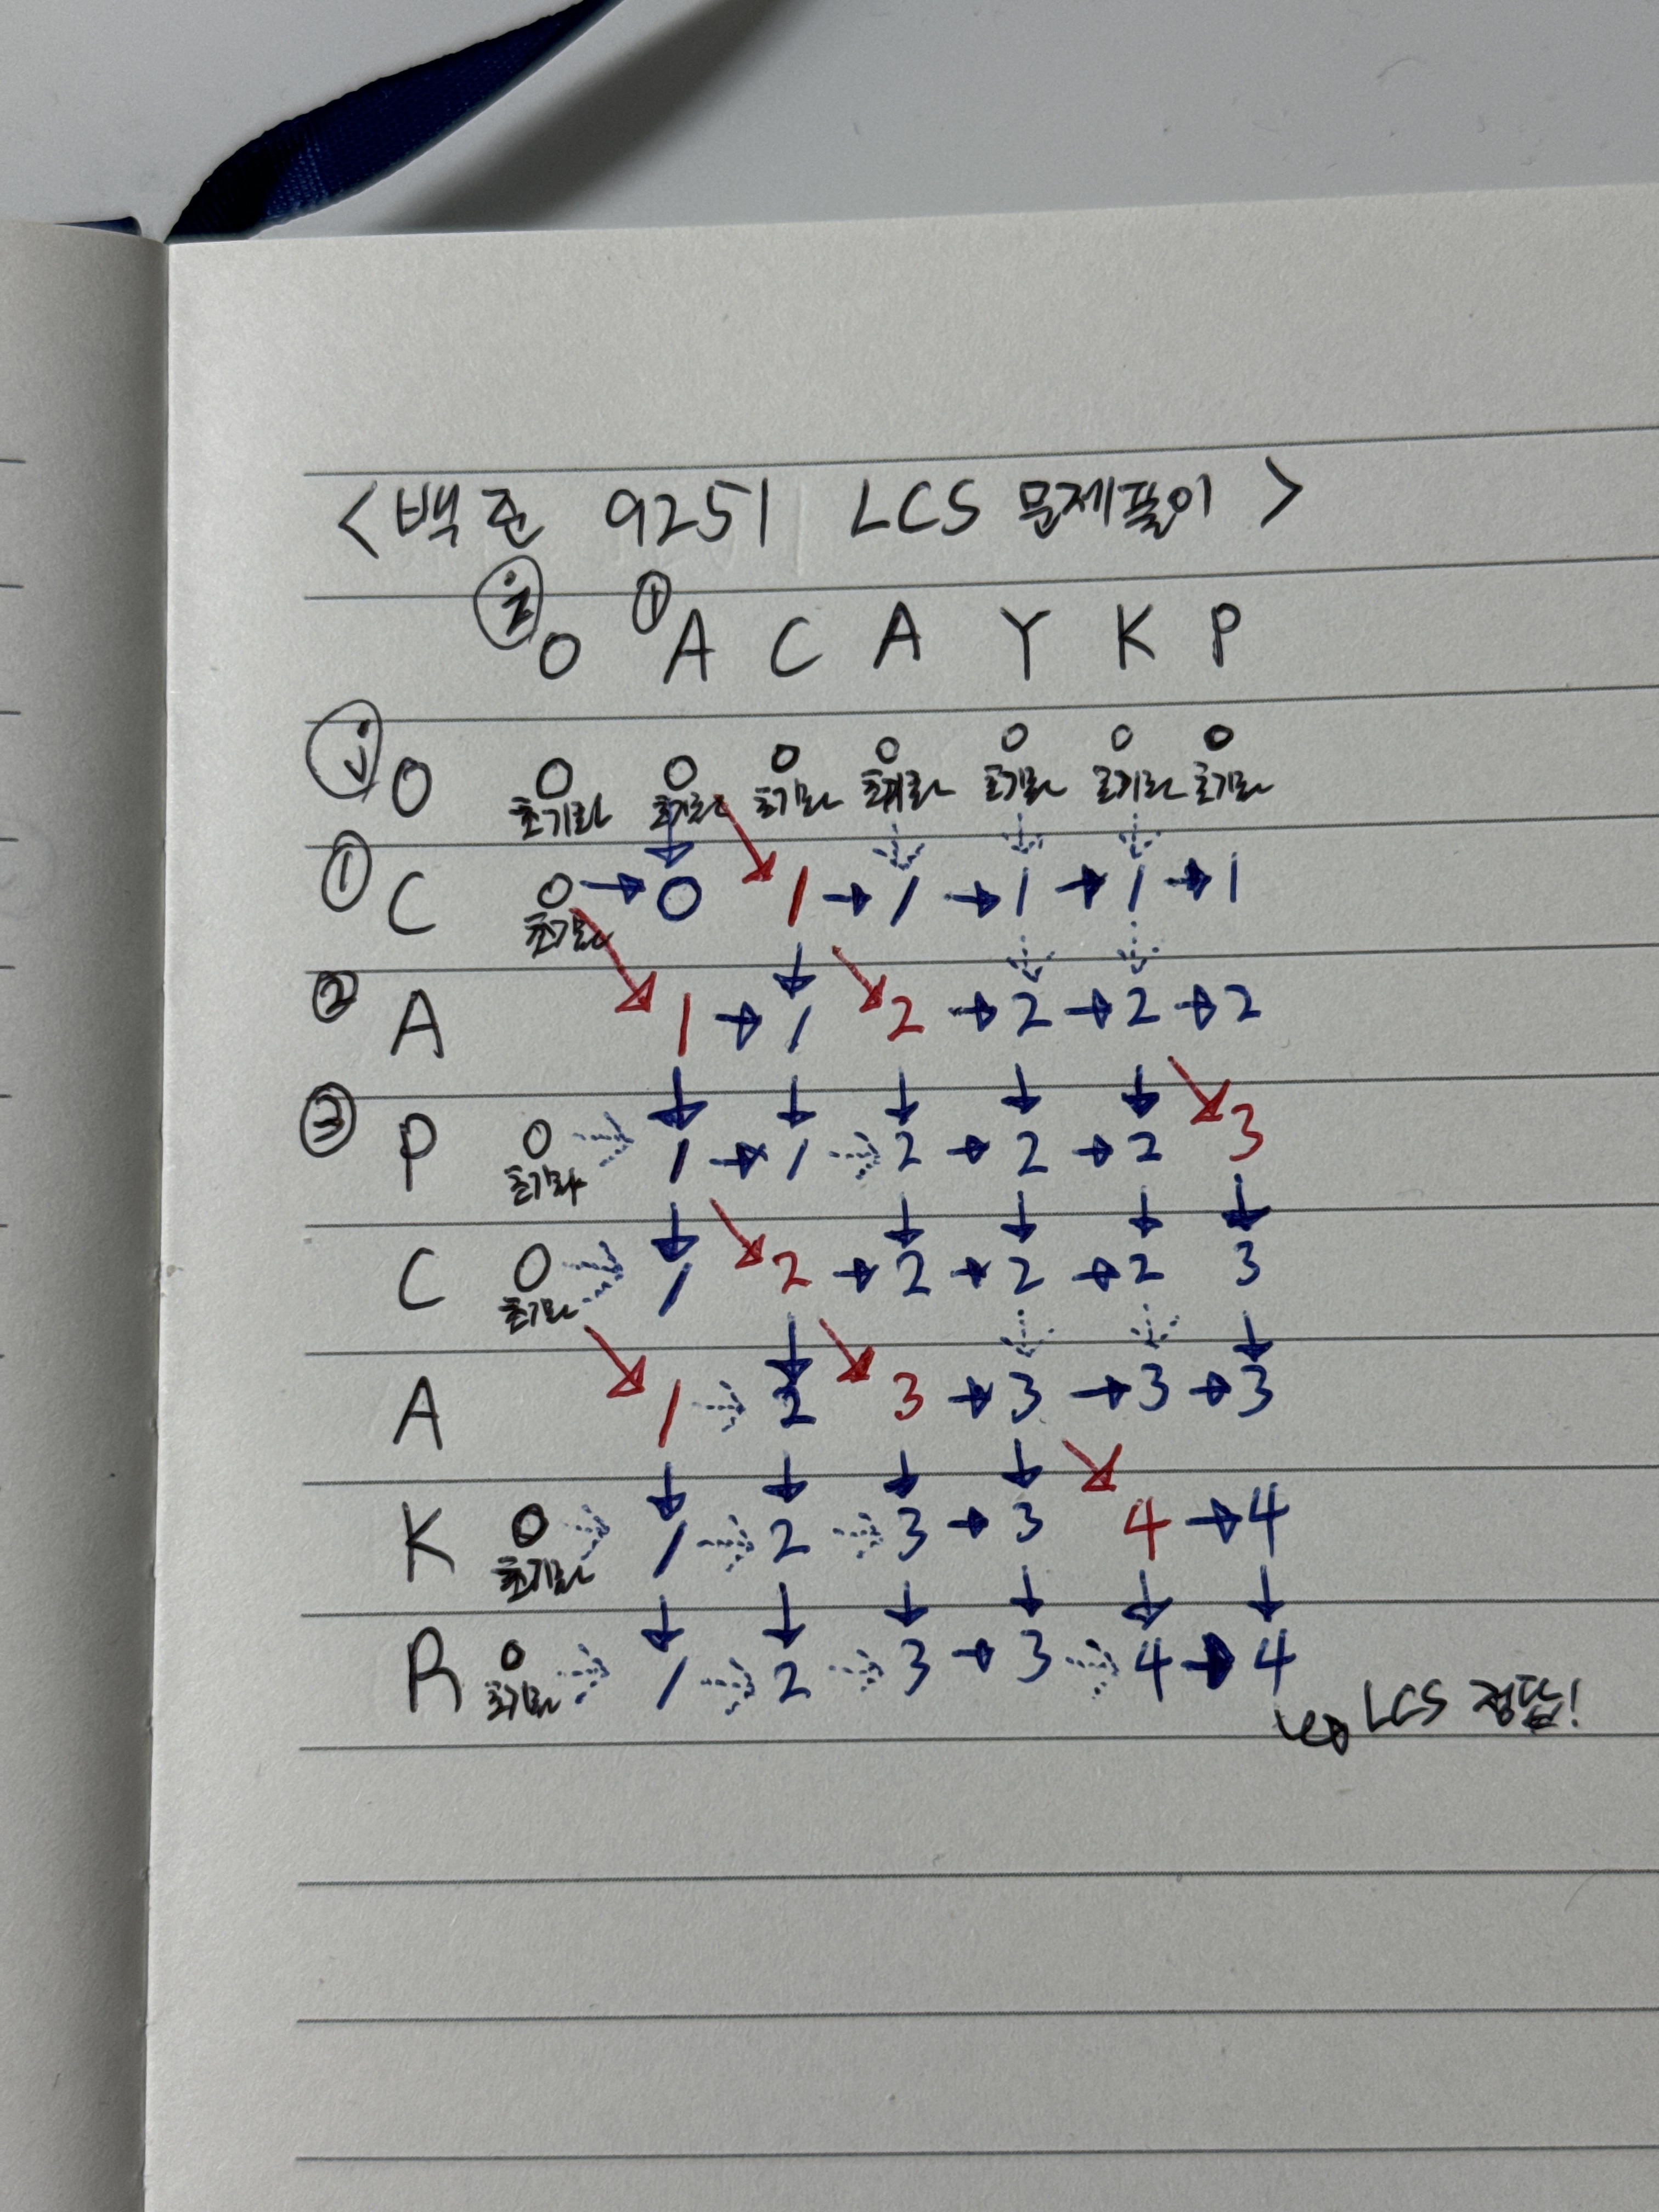 <백준 9251 LCS 문제풀이>
i ①
0 A C A Y K P
j 0 0 0 0 0 0 0 0
초기화 초기화 초기화 초기화 초기화 초기화 초기화
① C 0 → 0 1 → 1 → 1 → 1 → 1
초기화
② A 1 → 1 2 → 2 → 2 → 2
③ P 0 1 → 1 2 → 2 → 2 3
초기화
C 0 1 2 → 2 → 2 → 2 3
초기화
A 1 2 3 → 3 → 3 → 3
K 0 1 2 3 → 3 4 → 4
초기화
R 0 1 2 3 → 3 4 → 4
초기화
LCS 정답!